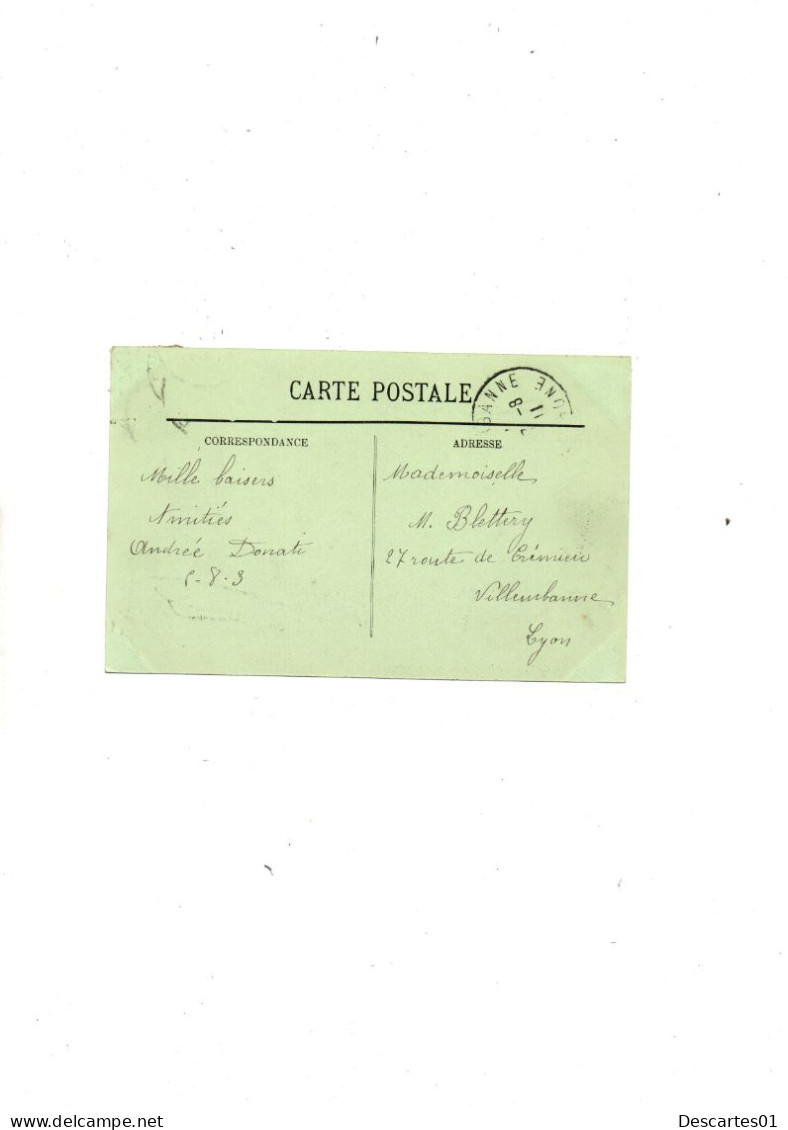 CARTE POSTALE
CORRESPONDANCE
Mille baisers
Amitiés
Andrée Donati
8-3
ADRESSE
Mademoiselle
M. Blettery
27 route de Crémieu
Villeurbanne
Lyon
BANNE
8-
11
ONE
Descartes01